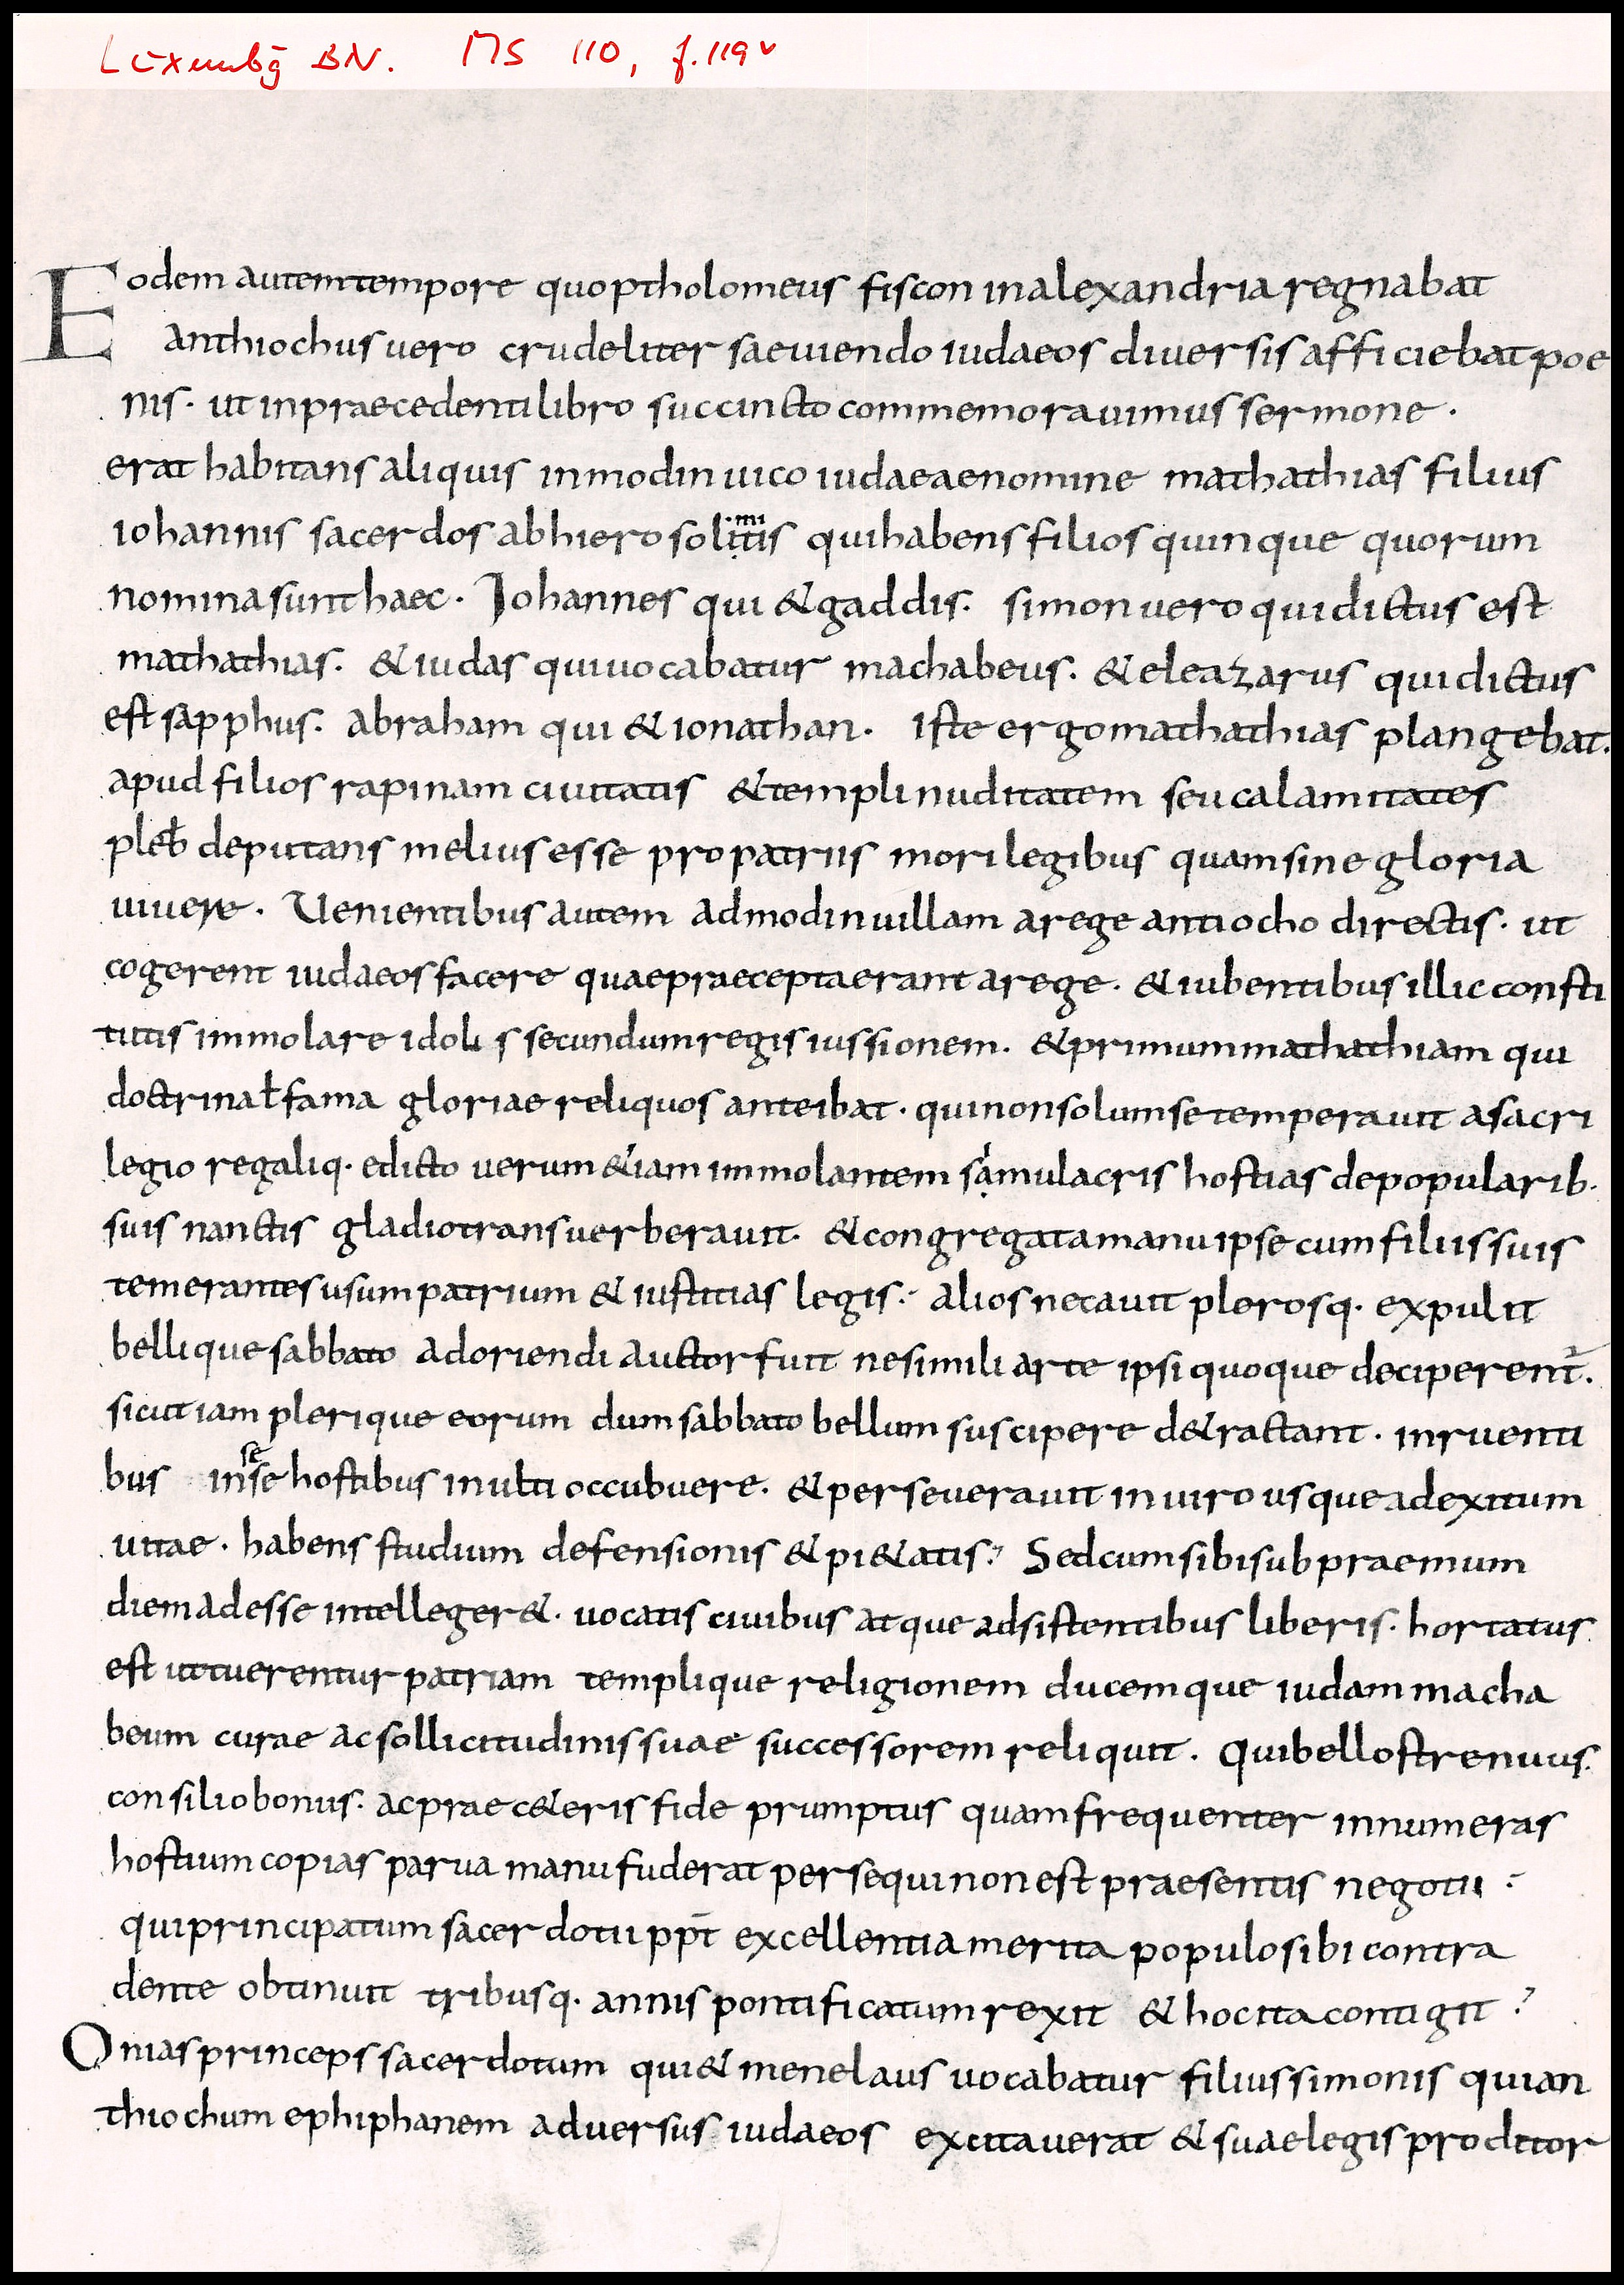 Luxembg BN. MS 110, f. 119v
Eodem autem tempore quo ptholomeus fiscon in alexandria regnabat
anthiochus uero crudeliter saeuiendo iudaeos diuersis afficiebat poe
nis · ut in praecedenti libro succincto commemorauimus sermone ·
erat habitans aliquis in modin uico iudaeae nomine mathathias filius
iohannis sacerdos ab hierosolitis qui habens filios quinque quorum
mi
nomina sunt haec · Iohannes qui & gaddis · simon uero qui dictus est
mathathias · & iudas qui uocabatur machabeus · & eleazarus qui dictus
est sapphus · abraham qui & ionathan · iste ergo mathathias plangebat ·
apud filios rapinam ciuitatis & templi nuditatem seu calamitates
pleƀ deputans melius esse pro patriis mori legibus quam sine gloria
uiuere · Uenientibus autem ad modin uillam a rege antiocho directis · ut
cogerent iudaeos facere quae praecepta erant a rege · & iubentibus illic consti
tutis immolare idolis secundum regis iussionem · & primum mathathiam qui
doctrina ł fama gloriae reliquos anteibat · qui non solum se temperauit a sacri
legio regaliq · edicto uerum &iam immolantem samulacris hostias de popularib ·
i
suis nanctis gladio transuerberauit · & congregata manu ipse cum filiis suis
temerantes usum patrium & iustitias legis · alios necauit plerosq · expulit
bellique sabbato adoriendi auctor fuit ne simili arte ipsi quoque deciperent̄ ·
sicut iam plerique eorum dum sabbato bellum suscipere d&ractant · inruenti
bus in se hostibus inulti occubuere · & perseuerauit in uiro usque ad exitum
se
uitae · habens studium defensionis & pi&atis · Sed cum sibi subpraemum
diem adesse intelleger& · uocatis ciuibus atque adsistentibus liberis · hortatus
est ut tuerentur patriam templique religionem ducemque iudam macha
beum curae ac sollicitudinis suae successorem reliquit · Qui bello strenuus ·
consilio bonus · ac prae c&eris fide prumptus quam frequenter innumeras
hostium copias parua manu fuderat persequi non est praesentis negotii :
qui principatum sacerdotii ppt̄ excellentia merita populo sibi contra
dente obtinuit tribusq · annis pontificatum rexit & hoc ita contigit ?
Onias princeps sacerdotum qui & menelaus uocabatur filius simonis qui an
thiochum ephiphanem aduersus iudaeos excitauerat & suae legis proditor